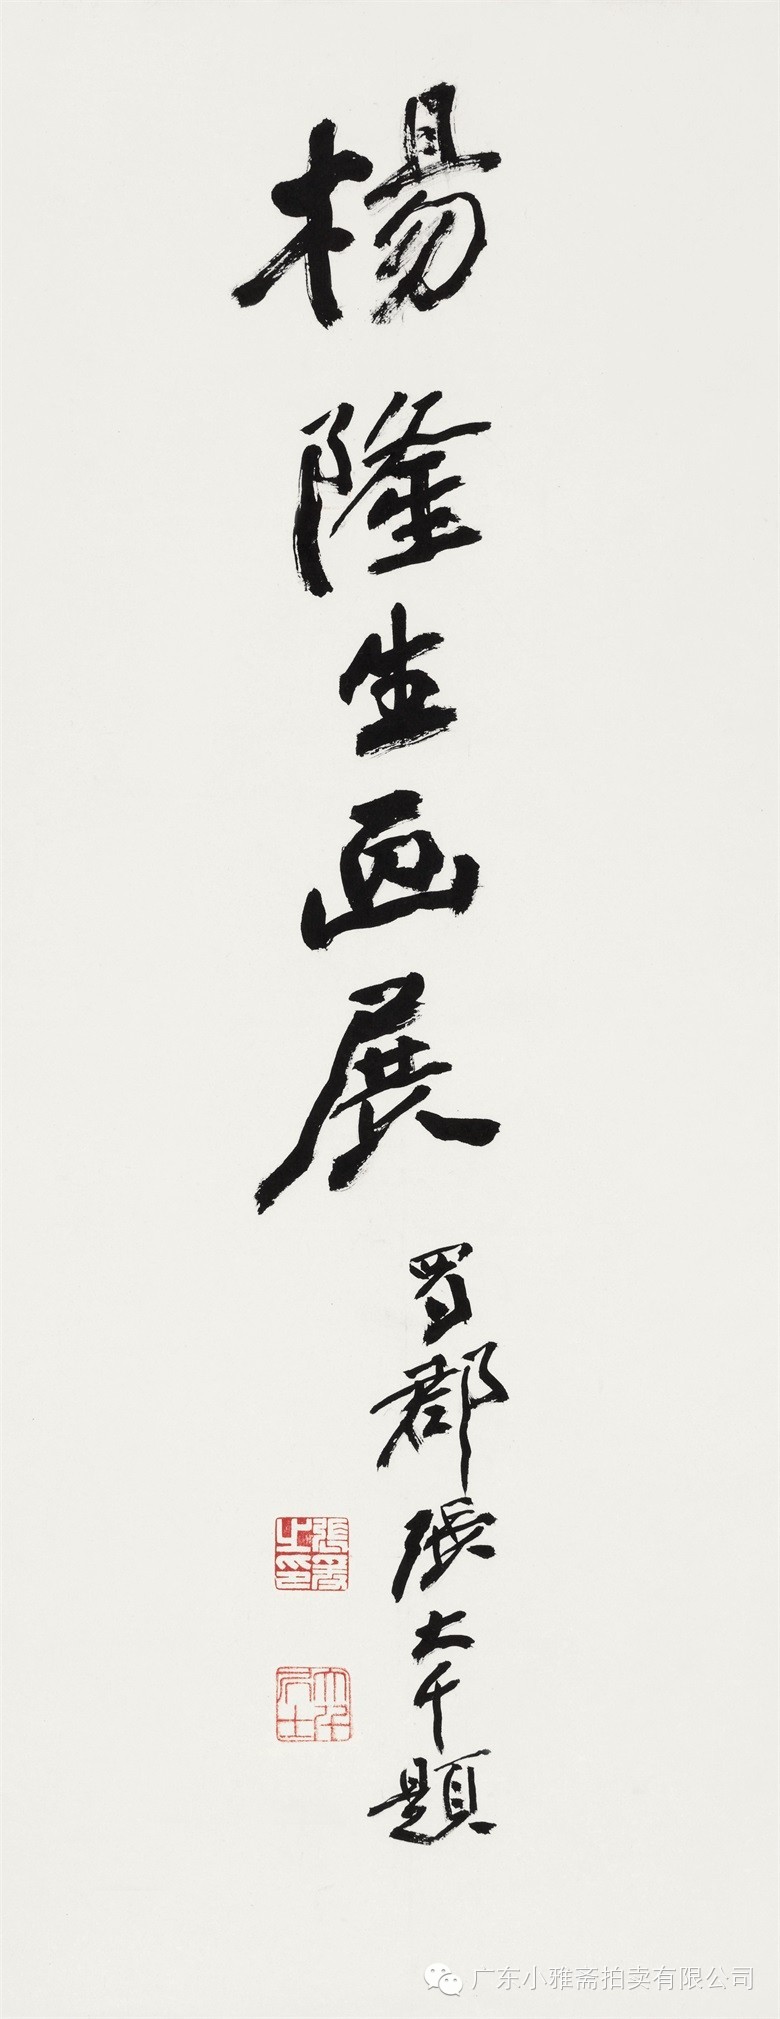 楊隆生画展
蜀郡張大千題
張爰之印
大千居士
广东小雅斋拍卖有限公司